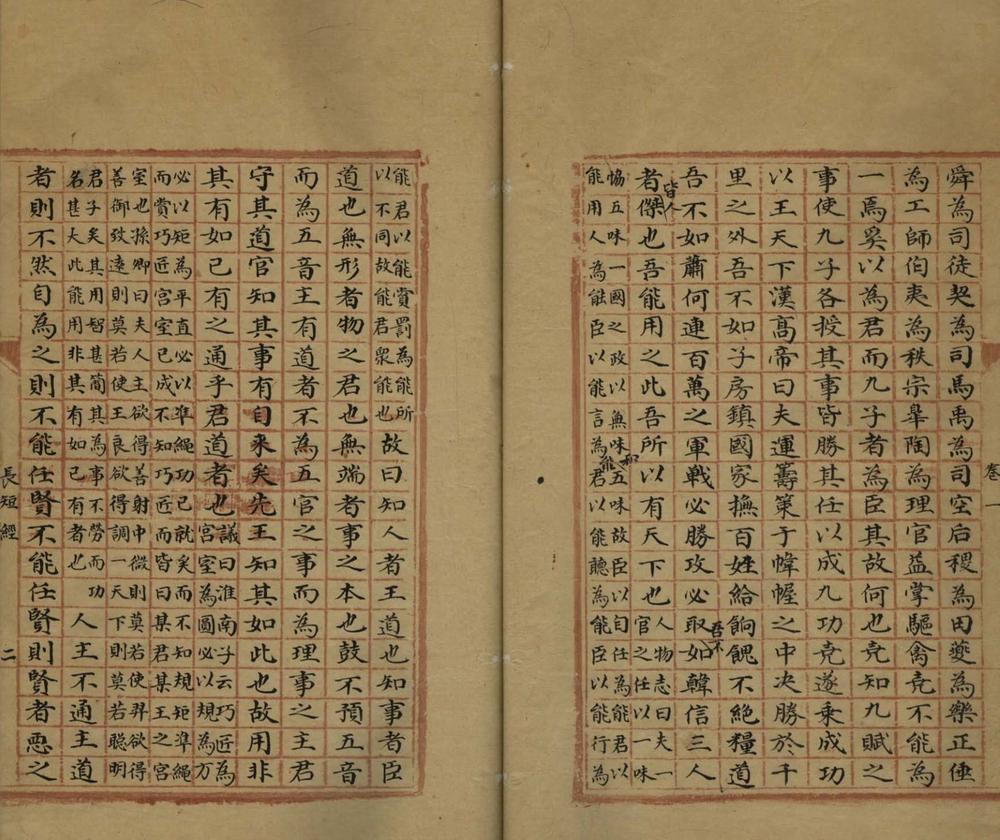 卷一
舜為司徒契為司馬禹為司空后稷為田夔為樂正倕
為工師伯夷為秩宗皋陶為理官益掌驅禽堯不能為
一焉奚以為君而九子者為臣其故何也堯知九賦之
事使九子各授其事皆勝其任以成九功堯遂乘成功
以王天下漢髙帝曰夫運籌策于幃幄之中决勝於千
里之外吾不如子房鎮國家撫百姓給餉餽不絕糧道
吾不如蕭何連百萬之軍戰必勝攻必取吾不如韓信三人
者皆人傑也吾能用之此吾所以有天下也人物志曰夫一
官之任以一味
協五味一國之政以無味和五味故臣以自任為能君以
能用人為能臣以能言為能君以能聽為能臣以能行為
能君以能賞罰為能所
以不同故能君衆能也故曰知人者王道也知事者臣
道也無形者物之君也無端者事之本也鼓不預五音
而為五音主有道者不為五官之事而為理事之主君
守其道官知其事有自来矣先王知其如此也故用非
其有如己有之通乎君道者也議曰淮南子云巧匠為
宮室為圓必以規為万
必以矩為平直必以凖繩功已就矣而不知規矩凖繩
而賞巧匠宮室已成不知巧匠而皆曰某君某王之宮
室也孫卿曰夫人主欲得善射中微則莫若使羿欲得
善御致遠則莫若使王良欲得調一天下則莫若聰明
君子矣其用智甚簡其為事不勞而功
名甚大此能用非其有如己有者也人主不通主道
者則不然自為之則不能任賢不能任賢則賢者惡之
長短經
二